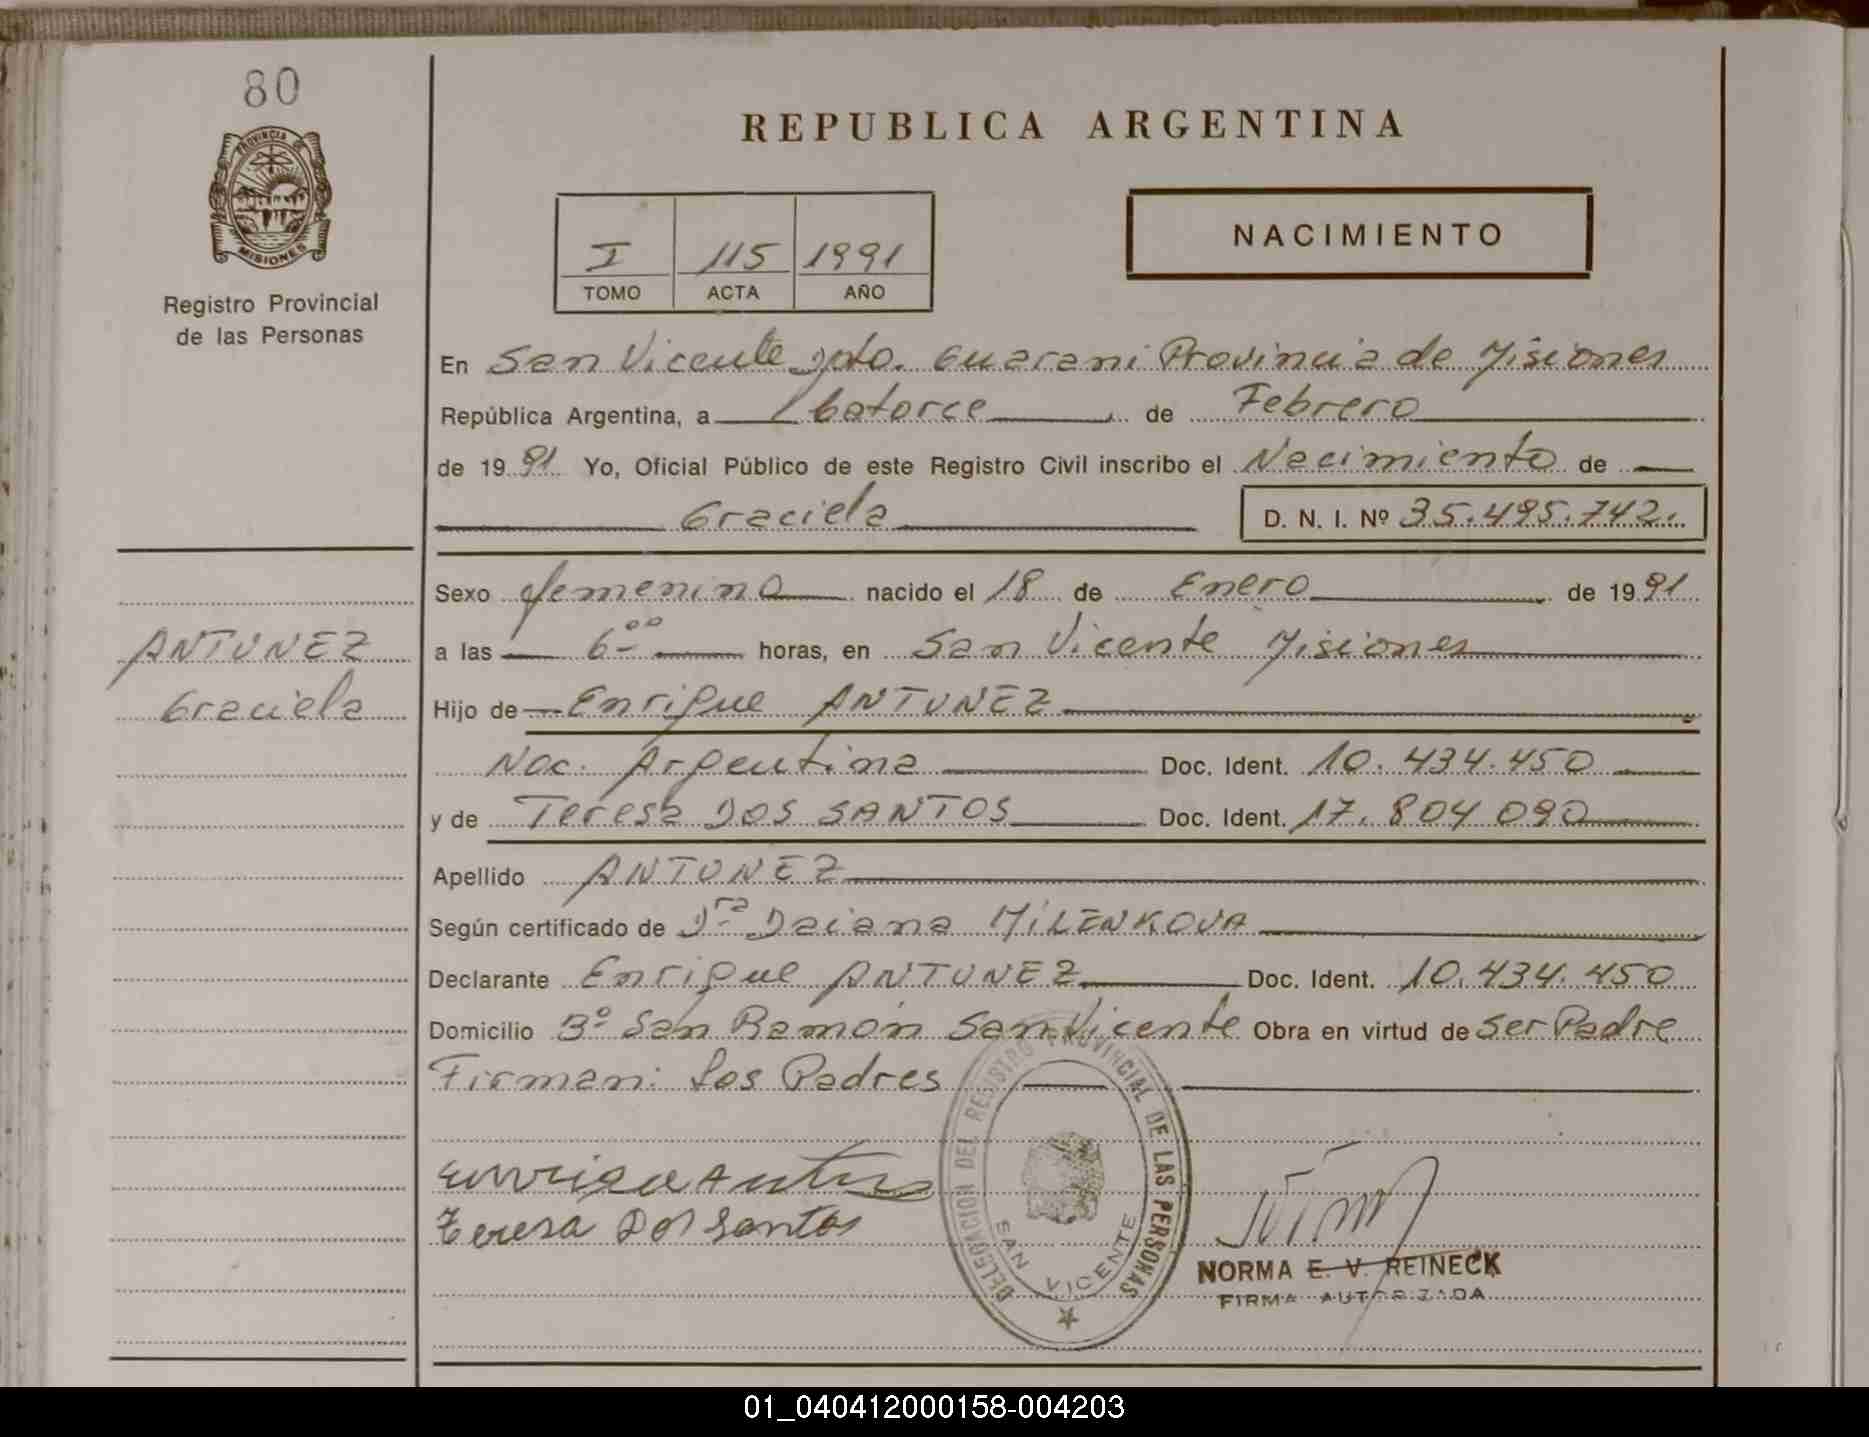 80
PROVINCIA DE
MISIONES
Registro Provincial
de las Personas
REPUBLICA ARGENTINA
I 115 1991
TOMO ACTA AÑO
NACIMIENTO
En San Vicente Dpto. Guarani Provincia de Misiones
República Argentina, a Catorce de Febrero
de 1991 Yo, Oficial Público de este Registro Civil inscribo el Nacimiento de
Graciela D. N. I. Nº 35.495.742.
ANTUNEZ
Graciela
Sexo femenino nacido el 18 de Enero de 1991
a las 6ºº horas, en San Vicente Misiones
Hijo de Enrique ANTUNEZ
Nac. Argentina Doc. Ident. 10.434.450
y de Teresa DOS SANTOS Doc. Ident. 17.804090
Apellido ANTUNEZ
Según certificado de Dra Daiana MILENKOVA
Declarante Enrique ANTUNEZ Doc. Ident. 10.434.450
Domicilio Bº San Ramón San Vicente Obra en virtud de ser Padre
Firman: Los Padres
Teresa Dos Santos
DELEGACION DEL REGISTRO PROVINCIAL DE LAS PERSONAS
SAN VICENTE
NORMA E. V. REINECK
FIRMA AUTORIZADA
01_040412000158-004203